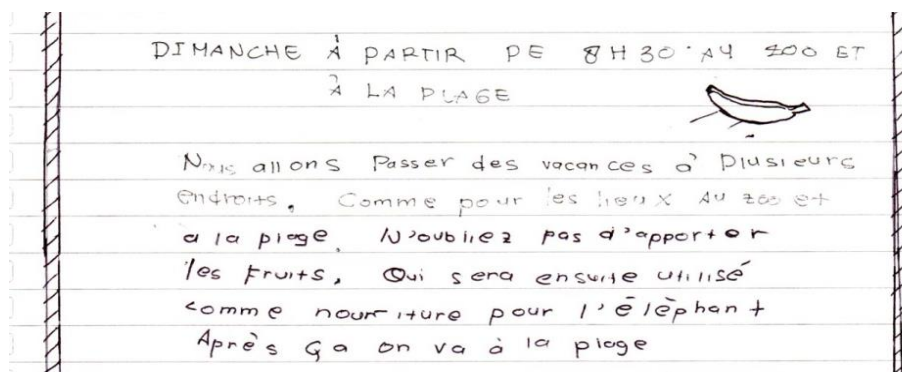 DIMANCHE À PARTIR DE 8H30 AU ZOO ET
À LA PLAGE
Nous allons Passer des vacances à Plusieurs
endroits. Comme pour les lieux AU zoo et
a la plage. N'oubliez pas d'apporter
les Fruits. Qui sera ensuite utilisé
comme nourriture pour l'élèphant
Après ça on va à la plage